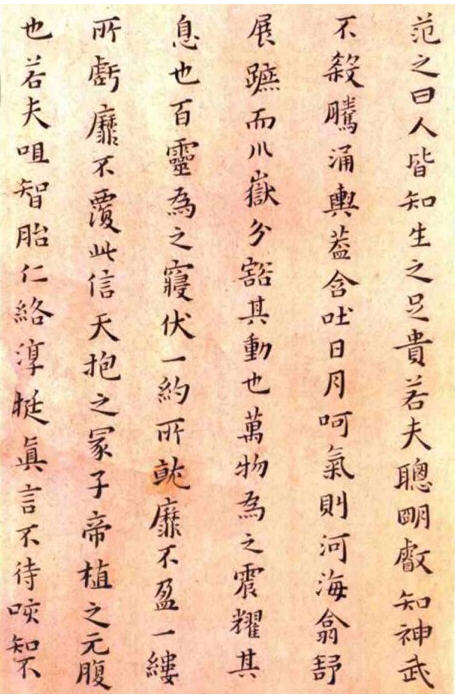 范之曰人皆知生之足貴若夫聰明叡知神武
不殺騰涌輿蓋含吐日月呵氣則河海翕舒
展蹠而川嶽分豁其動也萬物為之震耀其
息也百靈為之寢伏一約所就靡不盈一縷
所虧靡不覆此信天抱之冢子帝植之元腹
也若夫咀智胎仁絡淳挻眞言不待唊知不